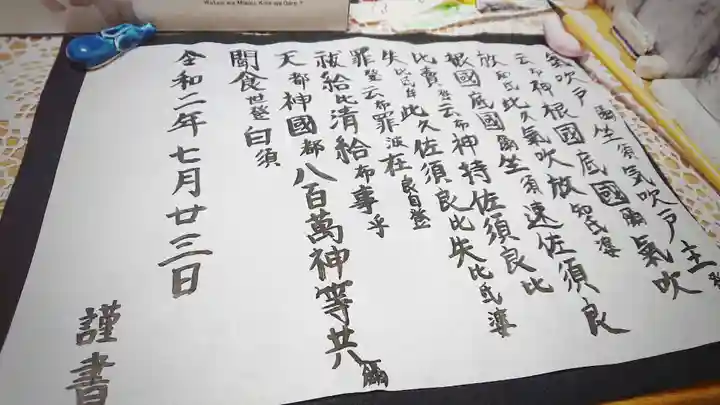 爾坐須氣吹戸主登
氣吹戸爾氣吹
云布神根國底國
放知氐婆
此久氣吹放
根國底國爾坐須速佐須良比
比賣登云布神持佐須良比失比氐婆
失比氐牟此久佐須良
罪登云布罪波在良自登
祓給比清給布事乎
天都神國都八百萬神等共爾
聞食世登白須
令和二年七月廿三日
謹書